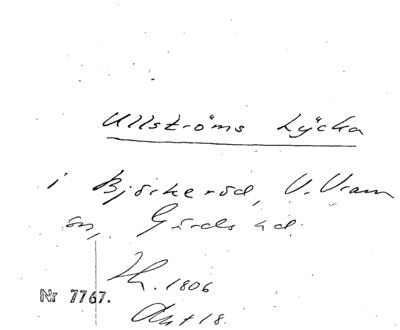 Ullströms Lycka
i Björkeröd, V. Vram
sn, Gärds hd.
Nr 7767.
1806
Akt 18.